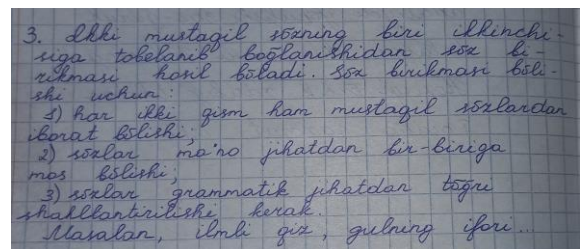 3. Ikki mustaqil sözning biri ikkinchi-
siga tobelanib boğlanishidan söz bi-
rikmasi hosil böladi. Söz birikmasi böli-
shi uchun:
1) har ikki qism ham mustaqil sözlardan
iborat bölishi;
2) sözlar ma'no jihatdan bir-biriga
mos bölishi;
3) sözlar grammatik jihatdan töğri
shakllantirilishi kerak.
Masalan, ilmli qiz, gulning ifori...